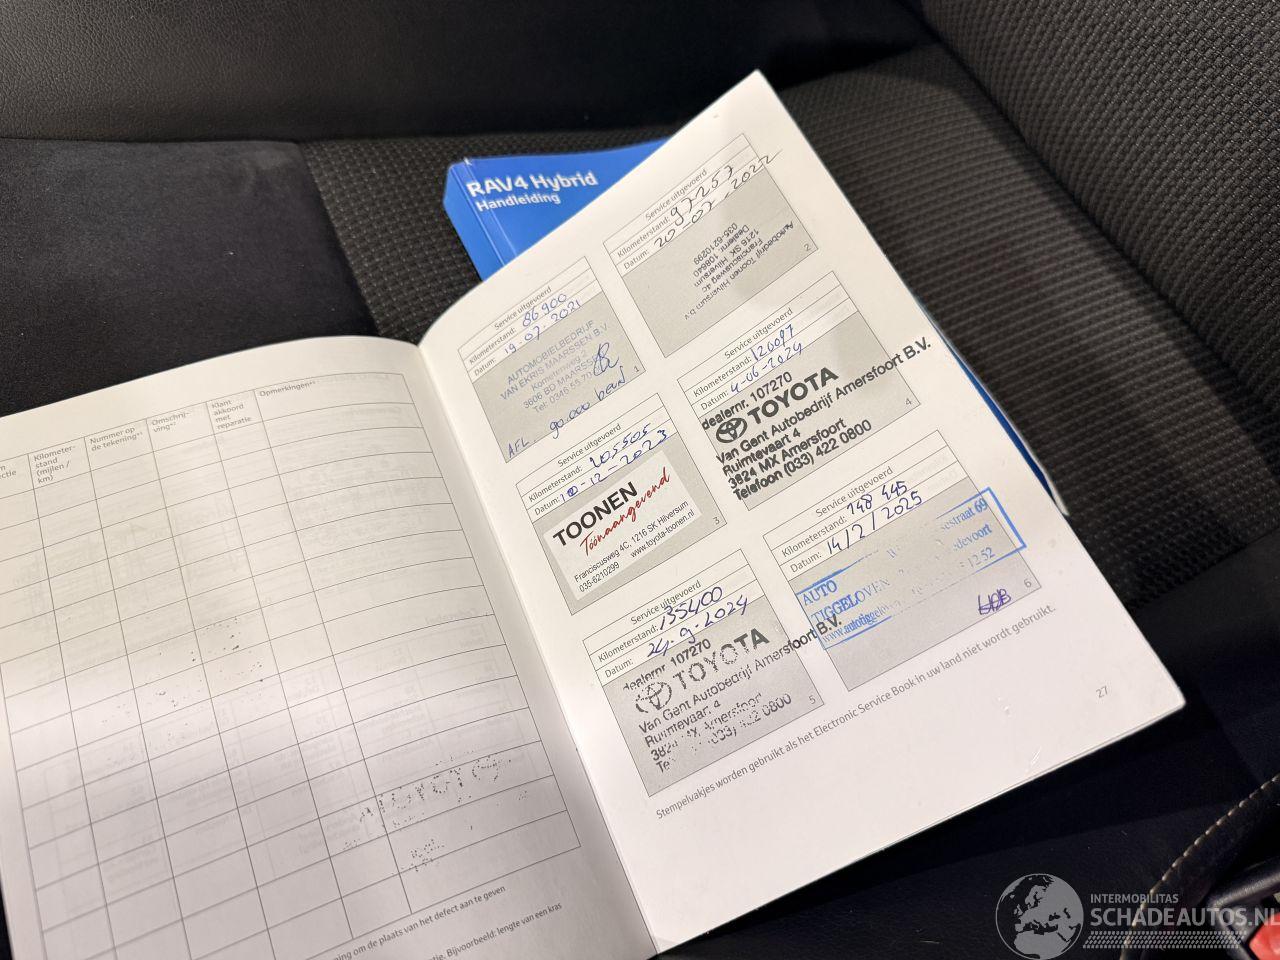 RAV4 Hybrid
Handleiding
Kilometer-
stand
(mijlen /
km)
Nummer op
de tekening*¹
Omschrij-
ving*²
Klant
akkoord
met
reparatie
Opmerkingen*³
om de plaats van het defect aan te geven
Bijvoorbeeld: lengte van een kras
Service uitgevoerd
Kilometerstand: 86.900
Datum: 19-07-2021
AUTOMOBIELBEDRIJF
VAN EKRIS MAARSSEN B.V.
Kometenweg 2
3606 BD MAARSSEN
Tel: 0346 55 70
AFL. 90.000 beurt
1
Service uitgevoerd
Kilometerstand: 97-257
Datum: 20-07-2022
Autobedrijf Toonen Hilversum b.v.
Franciscusweg 4c
1216 SK Hilversum
Dealernr. 108640
035-6210299
2
Service uitgevoerd
Kilometerstand: 105505
Datum: 10-12-2023
TOONEN
Tóónaangevend
Franciscusweg 4C, 1216 SK Hilversum
035-6210299 www.toyota-toonen.nl
3
Service uitgevoerd
Kilometerstand: 126097
Datum: 4-06-2024
dealernr. 107270
TOYOTA
Van Gent Autobedrijf Amersfoort B.V.
Ruimtevaart 4
3824 MX Amersfoort
Telefoon (033) 422 0800
4
Service uitgevoerd
Kilometerstand: 135400
Datum: 24-9-2024
dealernr. 107270
TOYOTA
Van Gent Autobedrijf Amersfoort B.V.
Ruimtevaart 4
3824 MX Amersfoort
(033) 422 0800
5
Service uitgevoerd
Kilometerstand: 148 445
Datum: 14/2/2025
AUTO
TIGGELOVEN
12 52
6
Stempelvakjes worden gebruikt als het Electronic Service Book in uw land niet wordt gebruikt.
27
INTERMOBILITAS
SCHADEAUTOS.NL